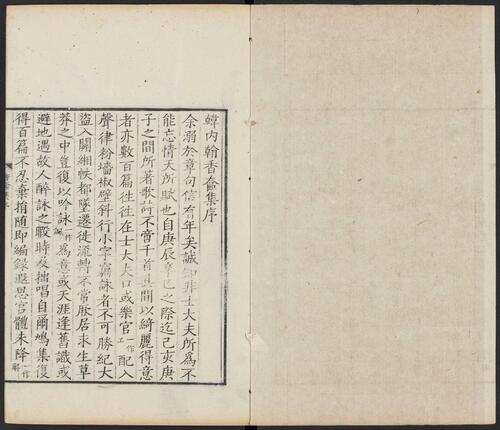 韓内翰香奩集序
余溺於章句信有年矣誠知非士大夫所為不
能忘情天所賦也自庚辰辛巳之際迄己亥庚
子之間所著歌詩不啻千首其間以綺麗得意
者亦數百篇往往在士大夫口或樂官一作工配入
聲律粉墻椒壁斜行小字竊詠者不可勝紀大
盜入關緗帙都墜遷徙流轉不常厥居求生草
莽之中豈復以吟詠為意或天涯逢舊識或
避地遇故人醉詠之暇時及拙唱自爾鳩集復
得百篇不忍棄捐隨即編錄遐思宮體未降一作解